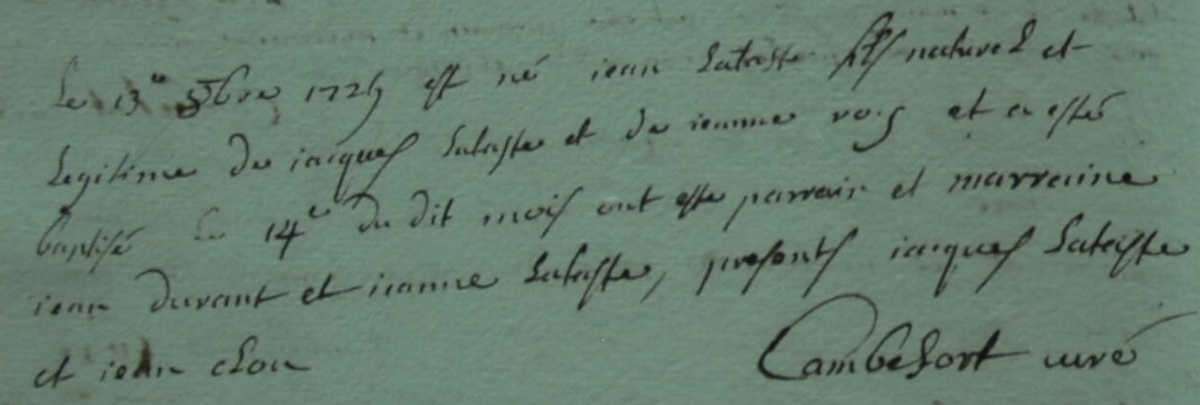 Le 13e 9bre 1725 est né iean Lataste fils naturel et
Legitime de iacques Lataste et de ieanne roy et a esté
baptisé Le 14e du dit mois ont esté parrain et marraine
iean durant et ieanne Lataste, presents iacques Lataste
et iean
Cambefort curé